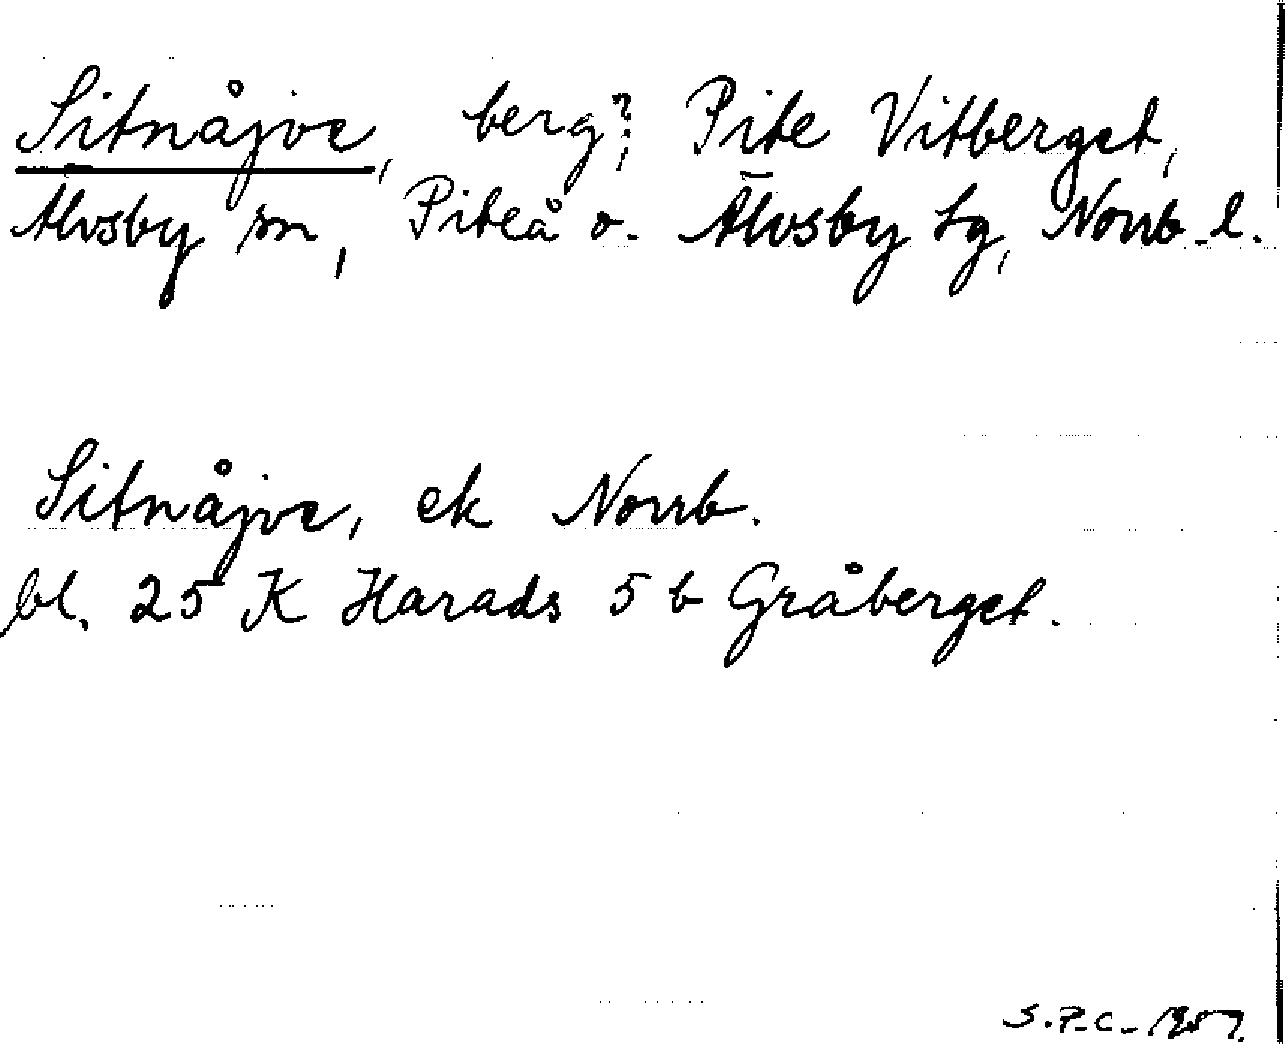 Sitnåjve, berg?; Pite Vitberget,
Älvsby sn, Piteå o. Älvsby tg, Norrb. l.
Sitnåjve, ek Norrb.
bl. 25 K Harads 5 b Gråberget.
S.P.C. 1957.